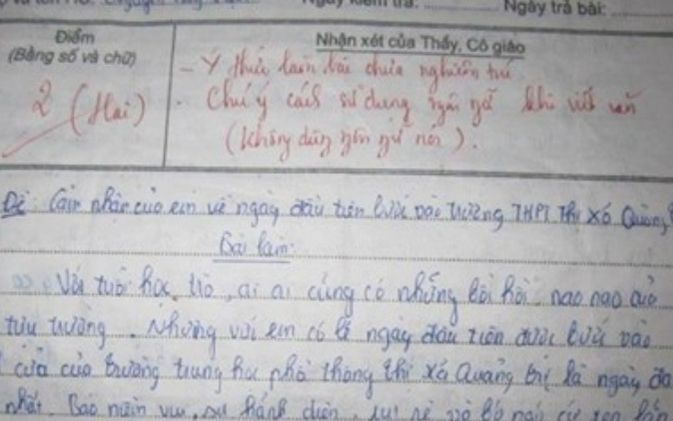 Ngày kiểm tra: Ngày trả bài:
Điểm
(Bằng số và chữ)
Nhận xét của Thầy, Cô giáo
2 (Hai)
- Ý thức làm bài chưa nghiêm túc
- Chú ý cách sử dụng ngôn ngữ khi viết văn
(không dùng ngôn ngữ nói).
Đề: Cảm nhận của em về ngày đầu tiên bước vào trường THPT Thị Xã Quảng
Bài làm:
Với tuổi học trò, ai ai cũng có những bồi hồi nao nao của
tựu trường. Nhưng với em có lẽ ngày đầu tiên được bước vào
cửa của trường trung học phổ thông thị xã Quảng trị là ngày
nhất. Bao niềm vui, sự hãnh diện,